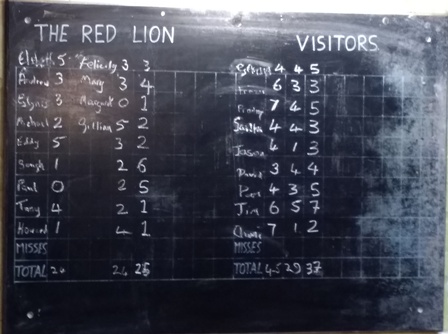 THE RED LION VISITORS
Elsbeth 5 Felicity 3 3 4 4 5
Andrew 3 Mary 3 4 6 3 3
3 Margaret 0 1 7 4 5
Michael 2 Gillian 5 2 4 4 3
Eddy 5 3 2 Jason 4 1 3
1 2 6 David 3 4 4
Paul 0 2 5 4 3 5
Tony 4 2 1 Jim 6 5 7
Howard 1 4 1 7 1 2
MISSES MISSES
TOTAL 24 TOTAL 45 29 37